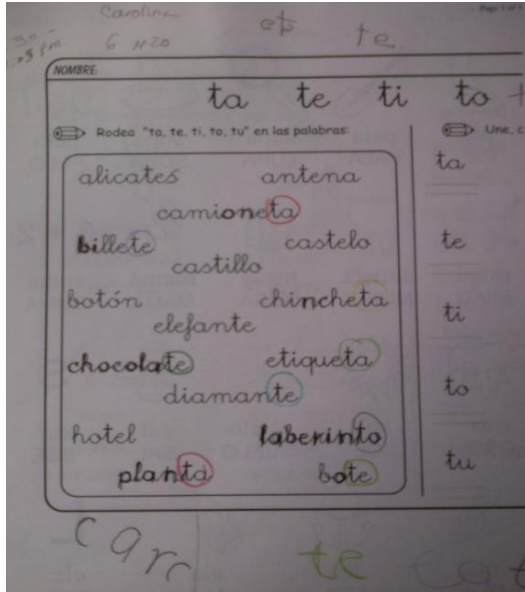 Carolina
te
6 Mzo
NOMBRE:
ta te ti to
Rodea "ta, te, ti, to, tu" en las palabras:
Une, c
alicates antena
camioneta
billete castelo
castillo
botón chincheta
elefante
chocolate etiqueta
diamante
hotel laberinto
planta bote
ta
te
ti
to
tu
carc te